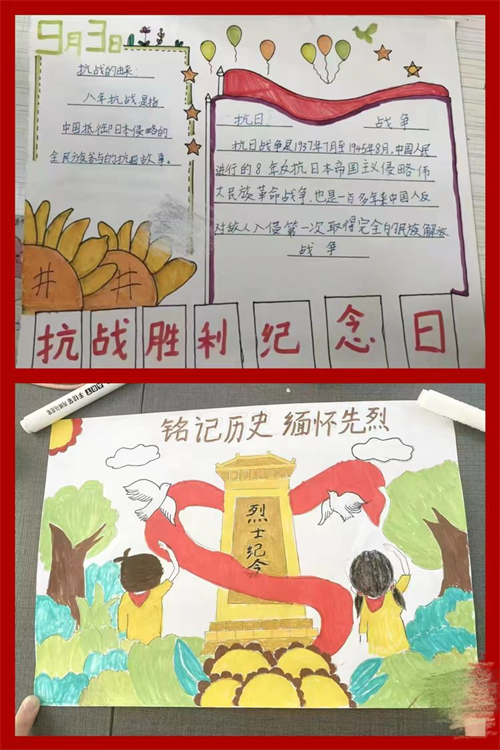 9月3日
抗战的由来:
八年抗战是指
中国抵抗日本侵略的
全民族参与的抗日故事。
抗日 战争
抗日战争是1937年7月至1945年8月,中国人民
进行的8年反抗日本帝国主义侵略伟
大民族革命战争,也是一百多年来中国人反
对敌人入侵第一次取得完全的民族解放
战争
抗战胜利纪念日
铭记历史 缅怀先烈
烈士纪念